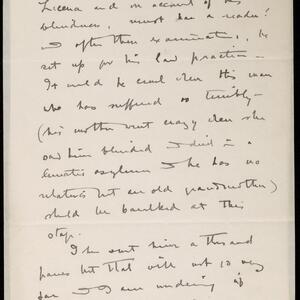 Licena and on account of his
blindness, must have a reader!
& after these examinations, he
set up for his law practice -
It would be cruel when this man
who has suffered so terribly -
(his mother went crazy when she
saw him blinded & died in a
lunatic asylum & he has no
relatives but an old grandmother)
should be baulked at this
step.
I have sent him a thousand
francs but that will not go very
far & I am undering if